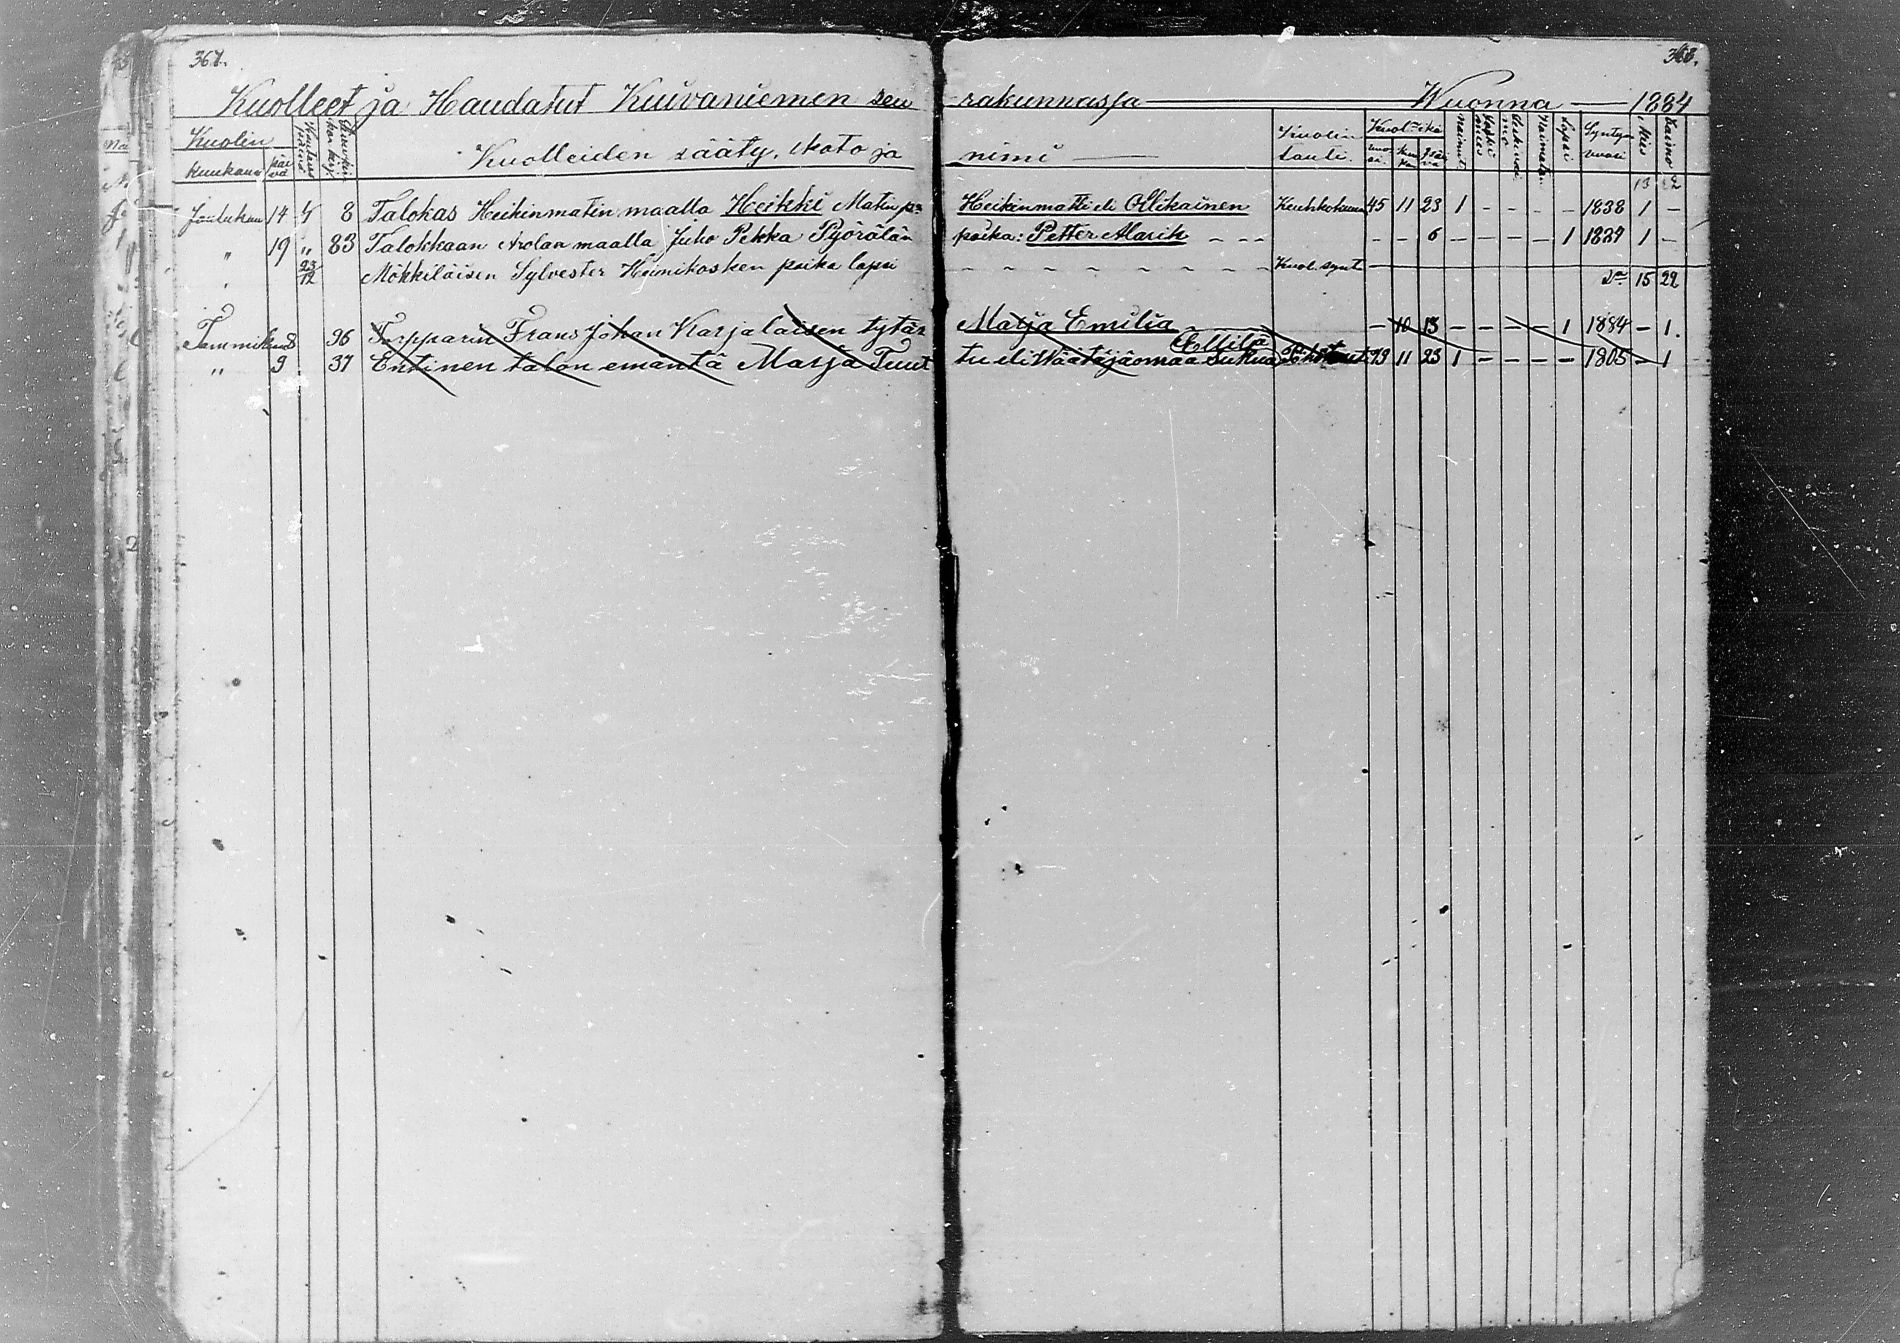 367. 368.
Kuolleet ja Haudatut Kuivaniemen seu rakunnassa Wuonna 1884
Kuolin Kuolin Kuol. ikä
Kuukausi päi vä Kuolleiden sääty, koto ja nimi tauti. vuo si kuu kau päi vä Nainut Leski mies Leski vai mo Naimaton Lapsi Synty vuosi Mies Waimo
13 22
Joulukuu 14 4 8 Talokas Heikinmatin maalla Heikki Matin p. Heikinmatti eli Ollikainen Keuhkokuume 45 11 23 1 - - - - 1838 1 -
" 19 " 83 Talokkaan Arolan maalla Juho Pekka Pyörälän poika: Petter Alarik - - - - - 6 - - - - 1 1 -
" 23/12 Mökkiläisen Sylvester Hamikosken poika lapsi Kuol. synt 15 22
Tammikuu 8 36 Torpparin Frans Johan Karjalaisen tytär Marja Emilia - 10 13 - - - - 1 1884 - 1.
" 9 37 Entinen talon emäntä Marja Tuut tu eli Wäätäjäomaa sukua 79 11 23 1 - - - - 1805 - 1